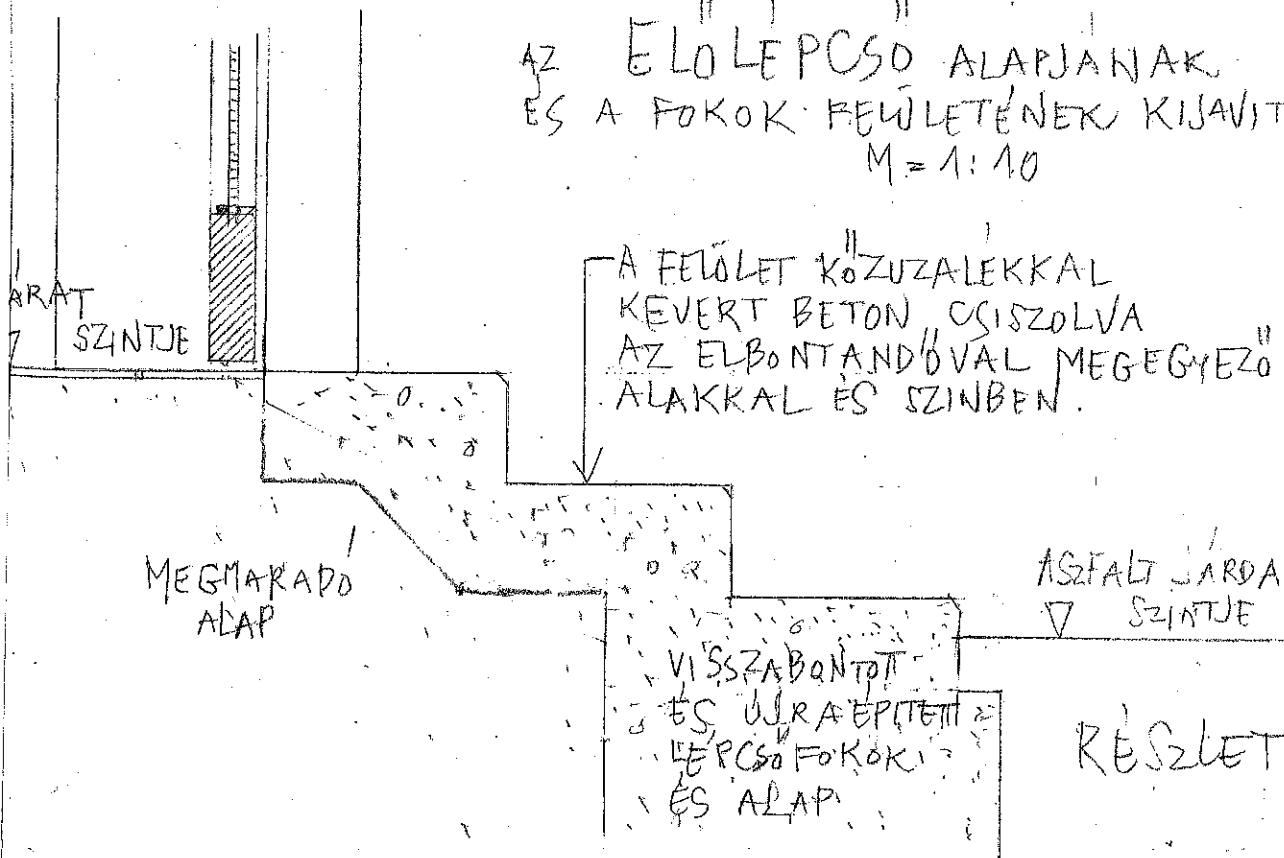 AZ ELŐLÉPCSŐ ALAPJÁNAK
ÉS A FOKOK FELÜLETÉNEK KIJAVÍT
M = 1:10
A FELÜLET KŐZUZALÉKKAL
KEVERT BETON CSISZOLVA
AZ ELBONTANDÓVAL MEGEGYEZŐ
ALAKKAL ÉS SZINBEN.
ÁRAT
SZINTJE
MEGMARADÓ
ALAP
ASZFALT JÁRDA
SZINTJE
VISSZABONTOTT
ÉS ÚJRAÉPÍTETT
LÉPCSŐFOKOK
ÉS ALAP
RÉSZLET